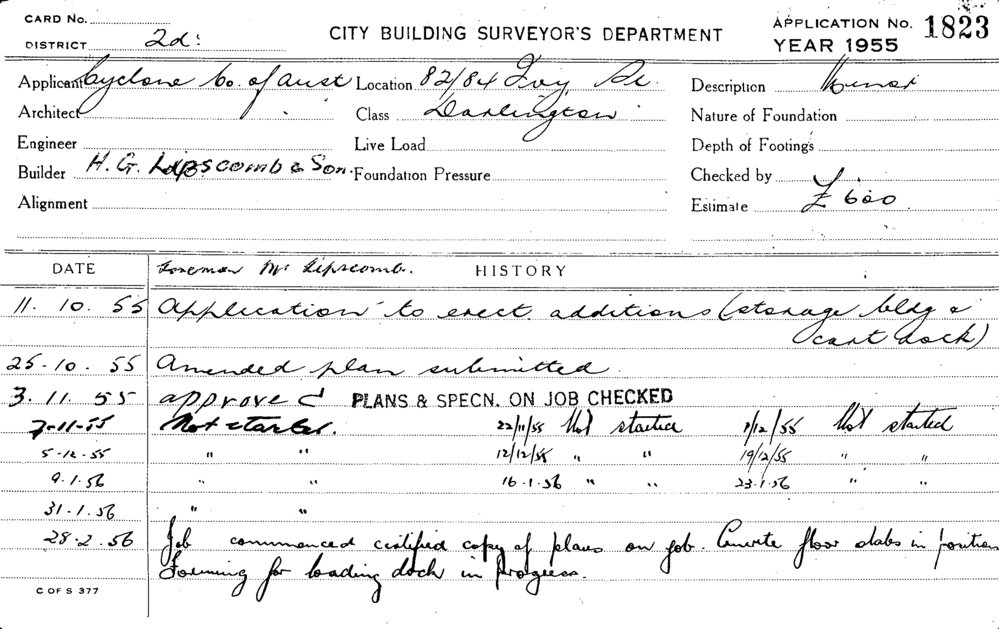 CARD No.
DISTRICT 2d.
CITY BUILDING SURVEYOR'S DEPARTMENT
APPLICATION No. 1823
YEAR 1955
Applicant Cyclone Co. of Aust Location 82/84 Ivy St. Description Minor
Architect Class Darlington Nature of Foundation
Engineer Live Load Depth of Footings
Builder H. G. Lipscomb & Son. Foundation Pressure Checked by
Alignment Estimate £600
DATE Foreman Mr Lipscomb. HISTORY
11. 10. 55 Application to erect additions (storage bldg &
cart dock)
25-10. 55 Amended plan submitted.
3. 11. 55 approved PLANS & SPECN. ON JOB CHECKED
7-11-55 Not started. 22/11/55 Not started /12/55 Not started
5-12-55 " " 12/12/55 " " 19/12/55 " "
9.1.56 " " 16-1.56 " " 23.1.56 " "
31.1.56 " "
28.2.56 Job commenced certified copy of plans on job. Concrete floor slabs in position
Forming for loading dock in progress.
C OF S 377